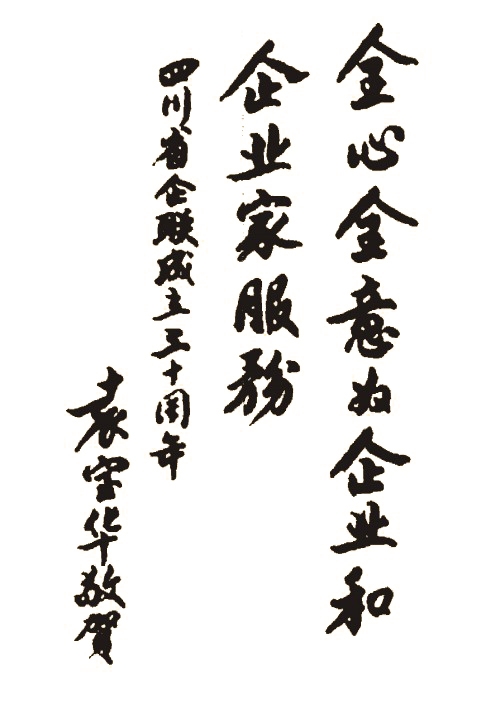 全心全意为企业和
企业家服務
四川省企联成立三十周年
袁宝华敬賀